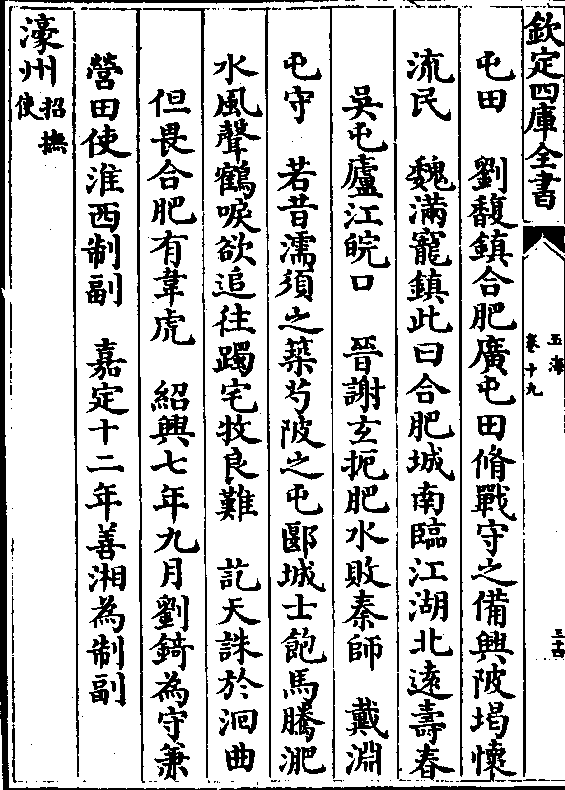 欽定四庫全書
玉海
卷十九
三十四
屯田　劉馥鎮合肥廣屯田脩戰守之備興陂堨懷
流民　魏滿寵鎮此曰合肥城南臨江湖北遠壽春
吳屯廬江皖口　晉謝玄扼肥水敗秦師　戴淵
屯守　若昔濡須之築芍陂之屯郾城士飽馬騰淝
水風聲鶴唳欲追往躅宅牧良難　訖天誅於洄曲
但畏合肥有韋虎　紹興七年九月劉錡為守兼
營田使淮西制副　嘉定十二年善湘為制副
濠州招撫使